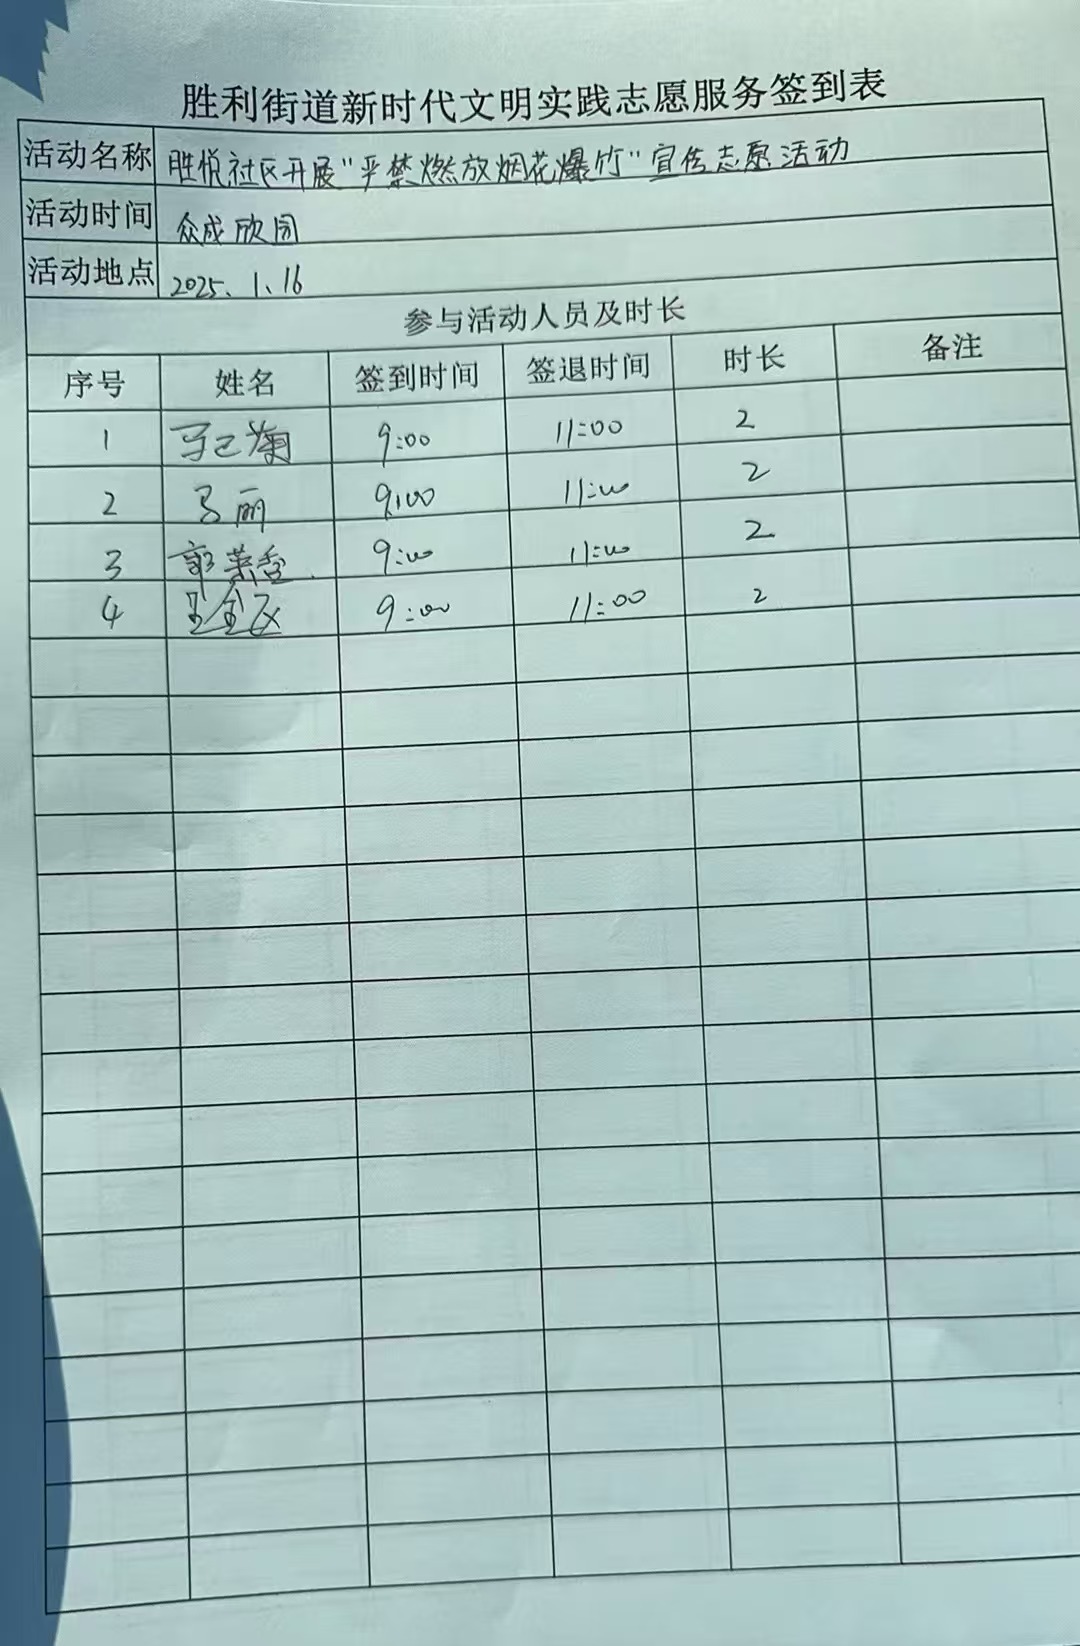 胜利街道新时代文明实践志愿服务签到表
活动名称 胜悦社区开展"严禁燃放烟花爆竹"宣传志愿活动
活动时间 众成欣园
活动地点 2025、1、16
参与活动人员及时长
序号 姓名 签到时间 签退时间 时长 备注
1 9:00 11:00 2
2 马丽 9:00 11:00 2
3 郭荣香 9:00 11:00 2
4 9:00 11:00 2